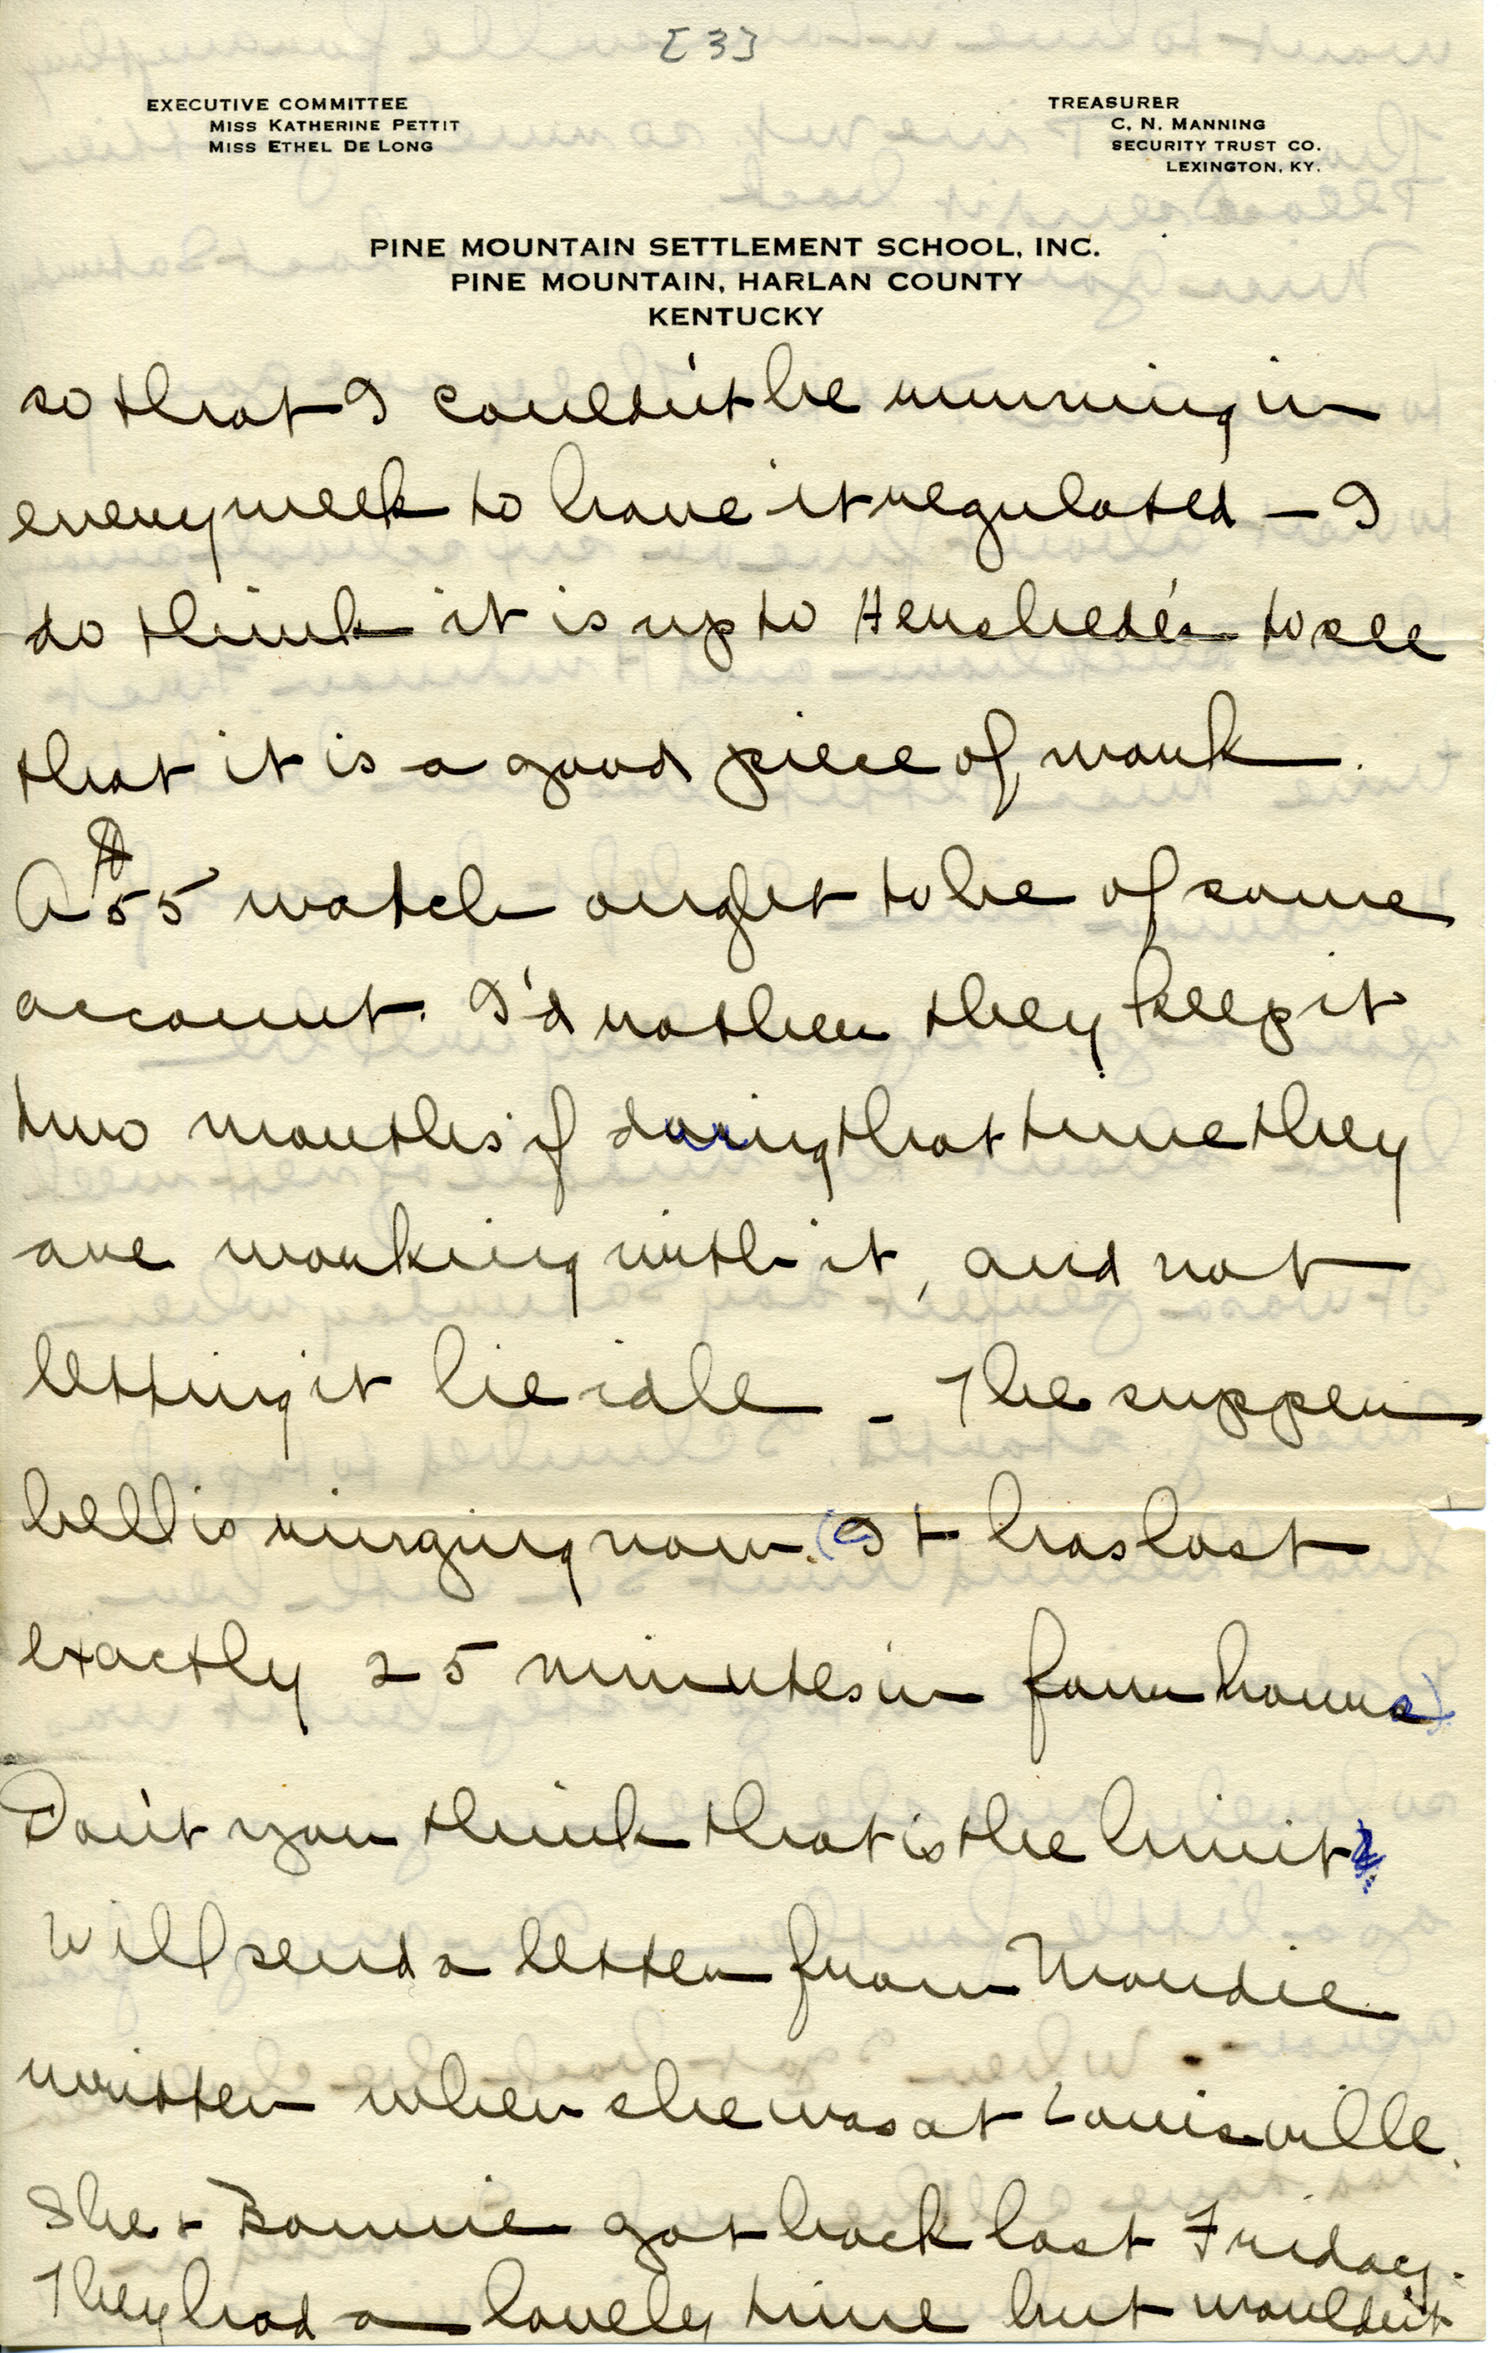 [3]
EXECUTIVE COMMITTEE
MISS KATHERINE PETTIT
MISS ETHEL DE LONG
TREASURER
C. N. MANNING
SECURITY TRUST CO.
LEXINGTON, KY.
PINE MOUNTAIN SETTLEMENT SCHOOL, INC.
PINE MOUNTAIN, HARLAN COUNTY
KENTUCKY
so that I couldn't be running in
every week to have it regulated — I
do think it is up to to see
that it is a good piece of work.
A $55 watch ought to be of some
account. I'd rather they keep it
two months if during that time they
are working with it, and not
letting it lie idle - The supper
bell is ringing now. (It has lost
exactly 25 minutes in four hours).
Don't you think that is the limit?
Will send a letter from Maudie
written when she was at Louisville.
She & Bonnie got back last Friday.
They had a lovely time but wouldn't